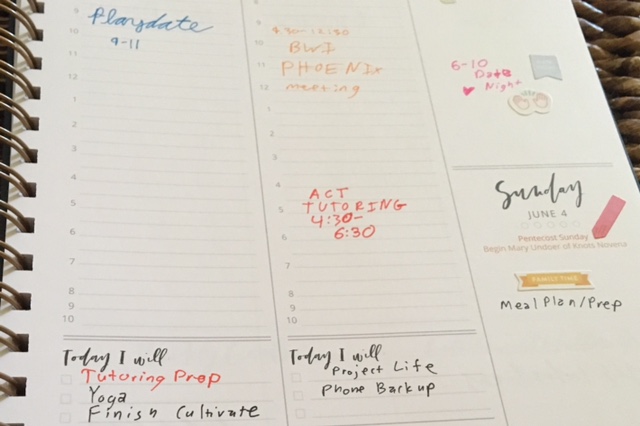 9
10
11
12
1
2
3
4
5
6
7
8
9
10
Playdate
9-11
Today I will
Tutoring Prep
Yoga
Finish Cultivate
8
9
10
11
12
1
2
3
4
5
6
7
8
9
10
9:30-12:30
BWI
PHOENIX
meeting
ACT
TUTORING
4:30-
6:30
Today I will
Project Life
Phone Backup
6-10
Date
Night
Sunday
JUNE 4
Pentecost Sunday
Begin Mary Undoer of Knots Novena
FAMILY TIME
Meal Plan/Prep